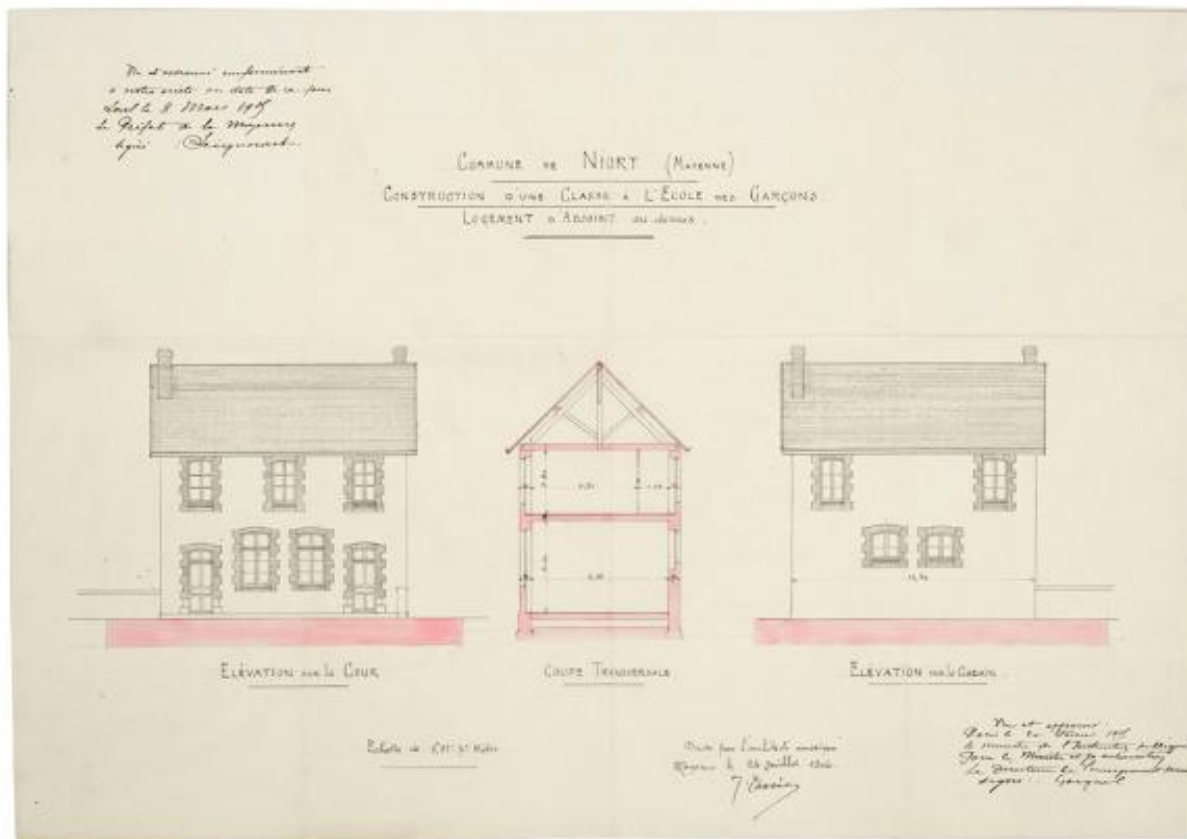 Vu et approuvé conformément
à notre arrêté en date de ce jour
Laval le 8 Mars 1905
Le Préfet de la Mayenne
Signé
COMMUNE DE NIORT (MAYENNE)
CONSTRUCTION D'UNE CLASSE A L'ECOLE DES GARÇONS
LOGEMENT D'ADJOINT au dessus.
12,70
ELÉVATION sur la COUR
COUPE TRANSVERSALE
ELÉVATION sur le JARDIN
Echelle de
Dressé par l'architecte soussigné
Mayenne le 26 Juillet 1904
Vu et approuvé
Paris le 20 Février 1905
le ministre de l'Instruction publique
Pour le Ministre et par autorisation
Le Directeur de l'enseignement
signé